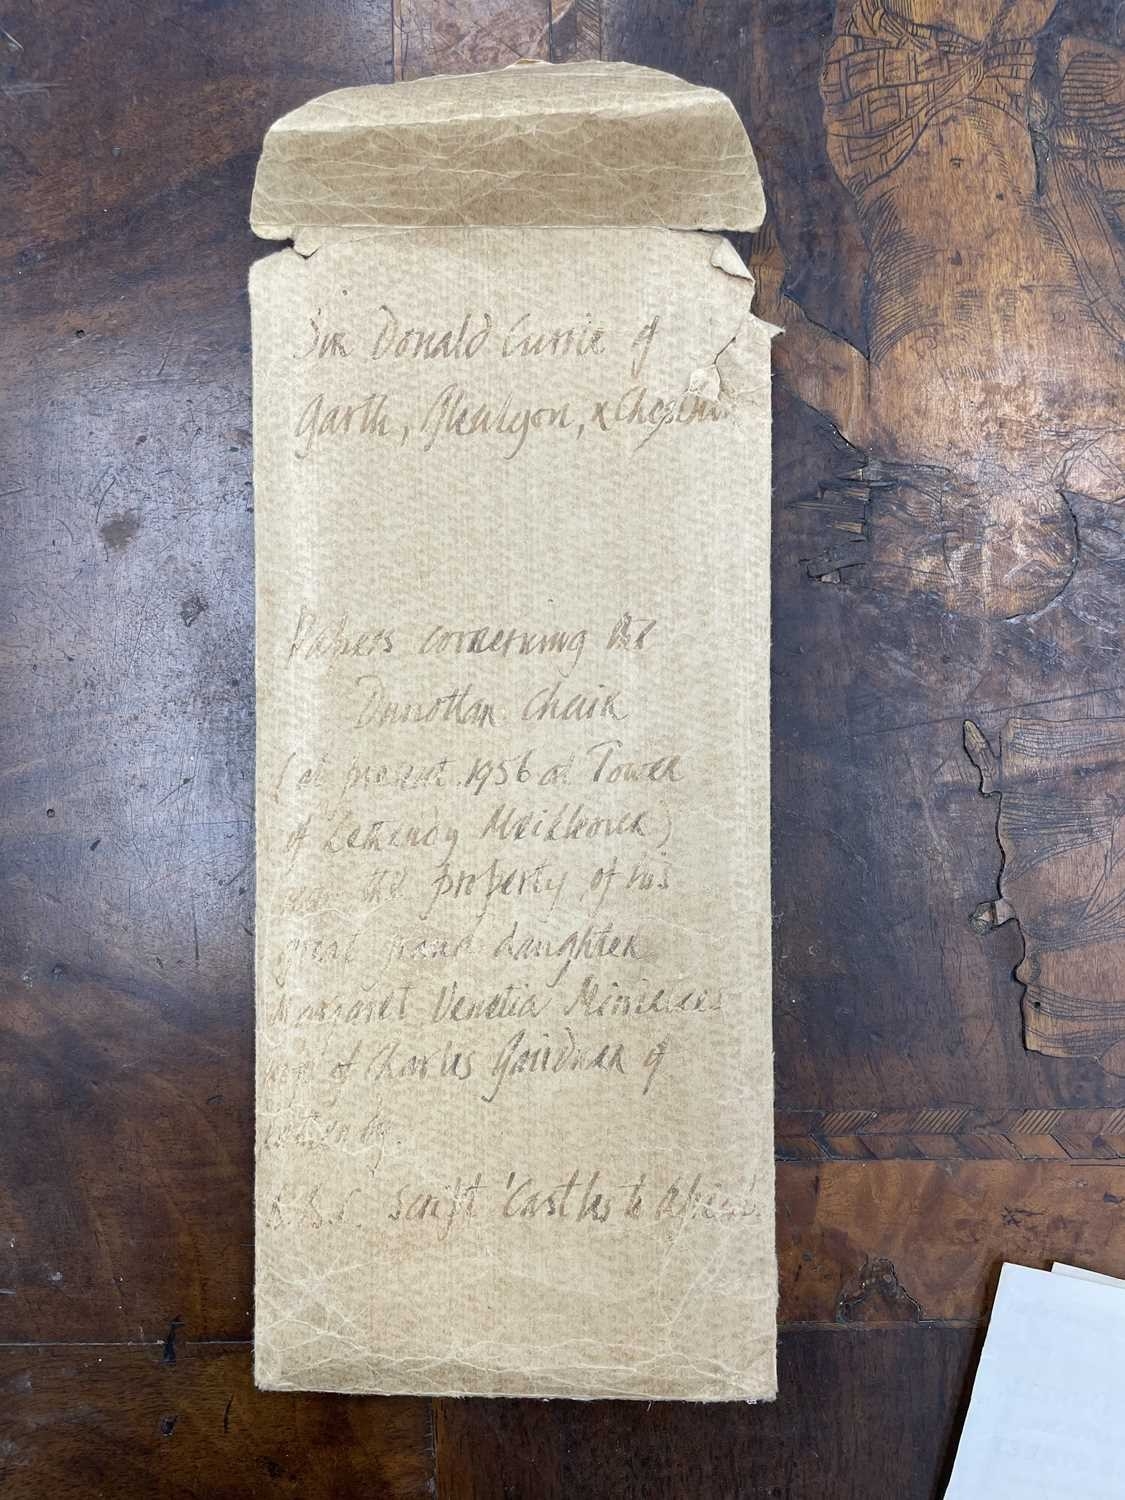 Sir Donald Currie of
Garth, Glenlyon, &
Papers concerning the
Dunottar Chair
(at present 1956 at Tower
of Lethendy Meikleour)
now the property of his
great grand daughter
Margaret Venetia
wife of Charles Gairdner of
Lethendy.
Script 'Castles to